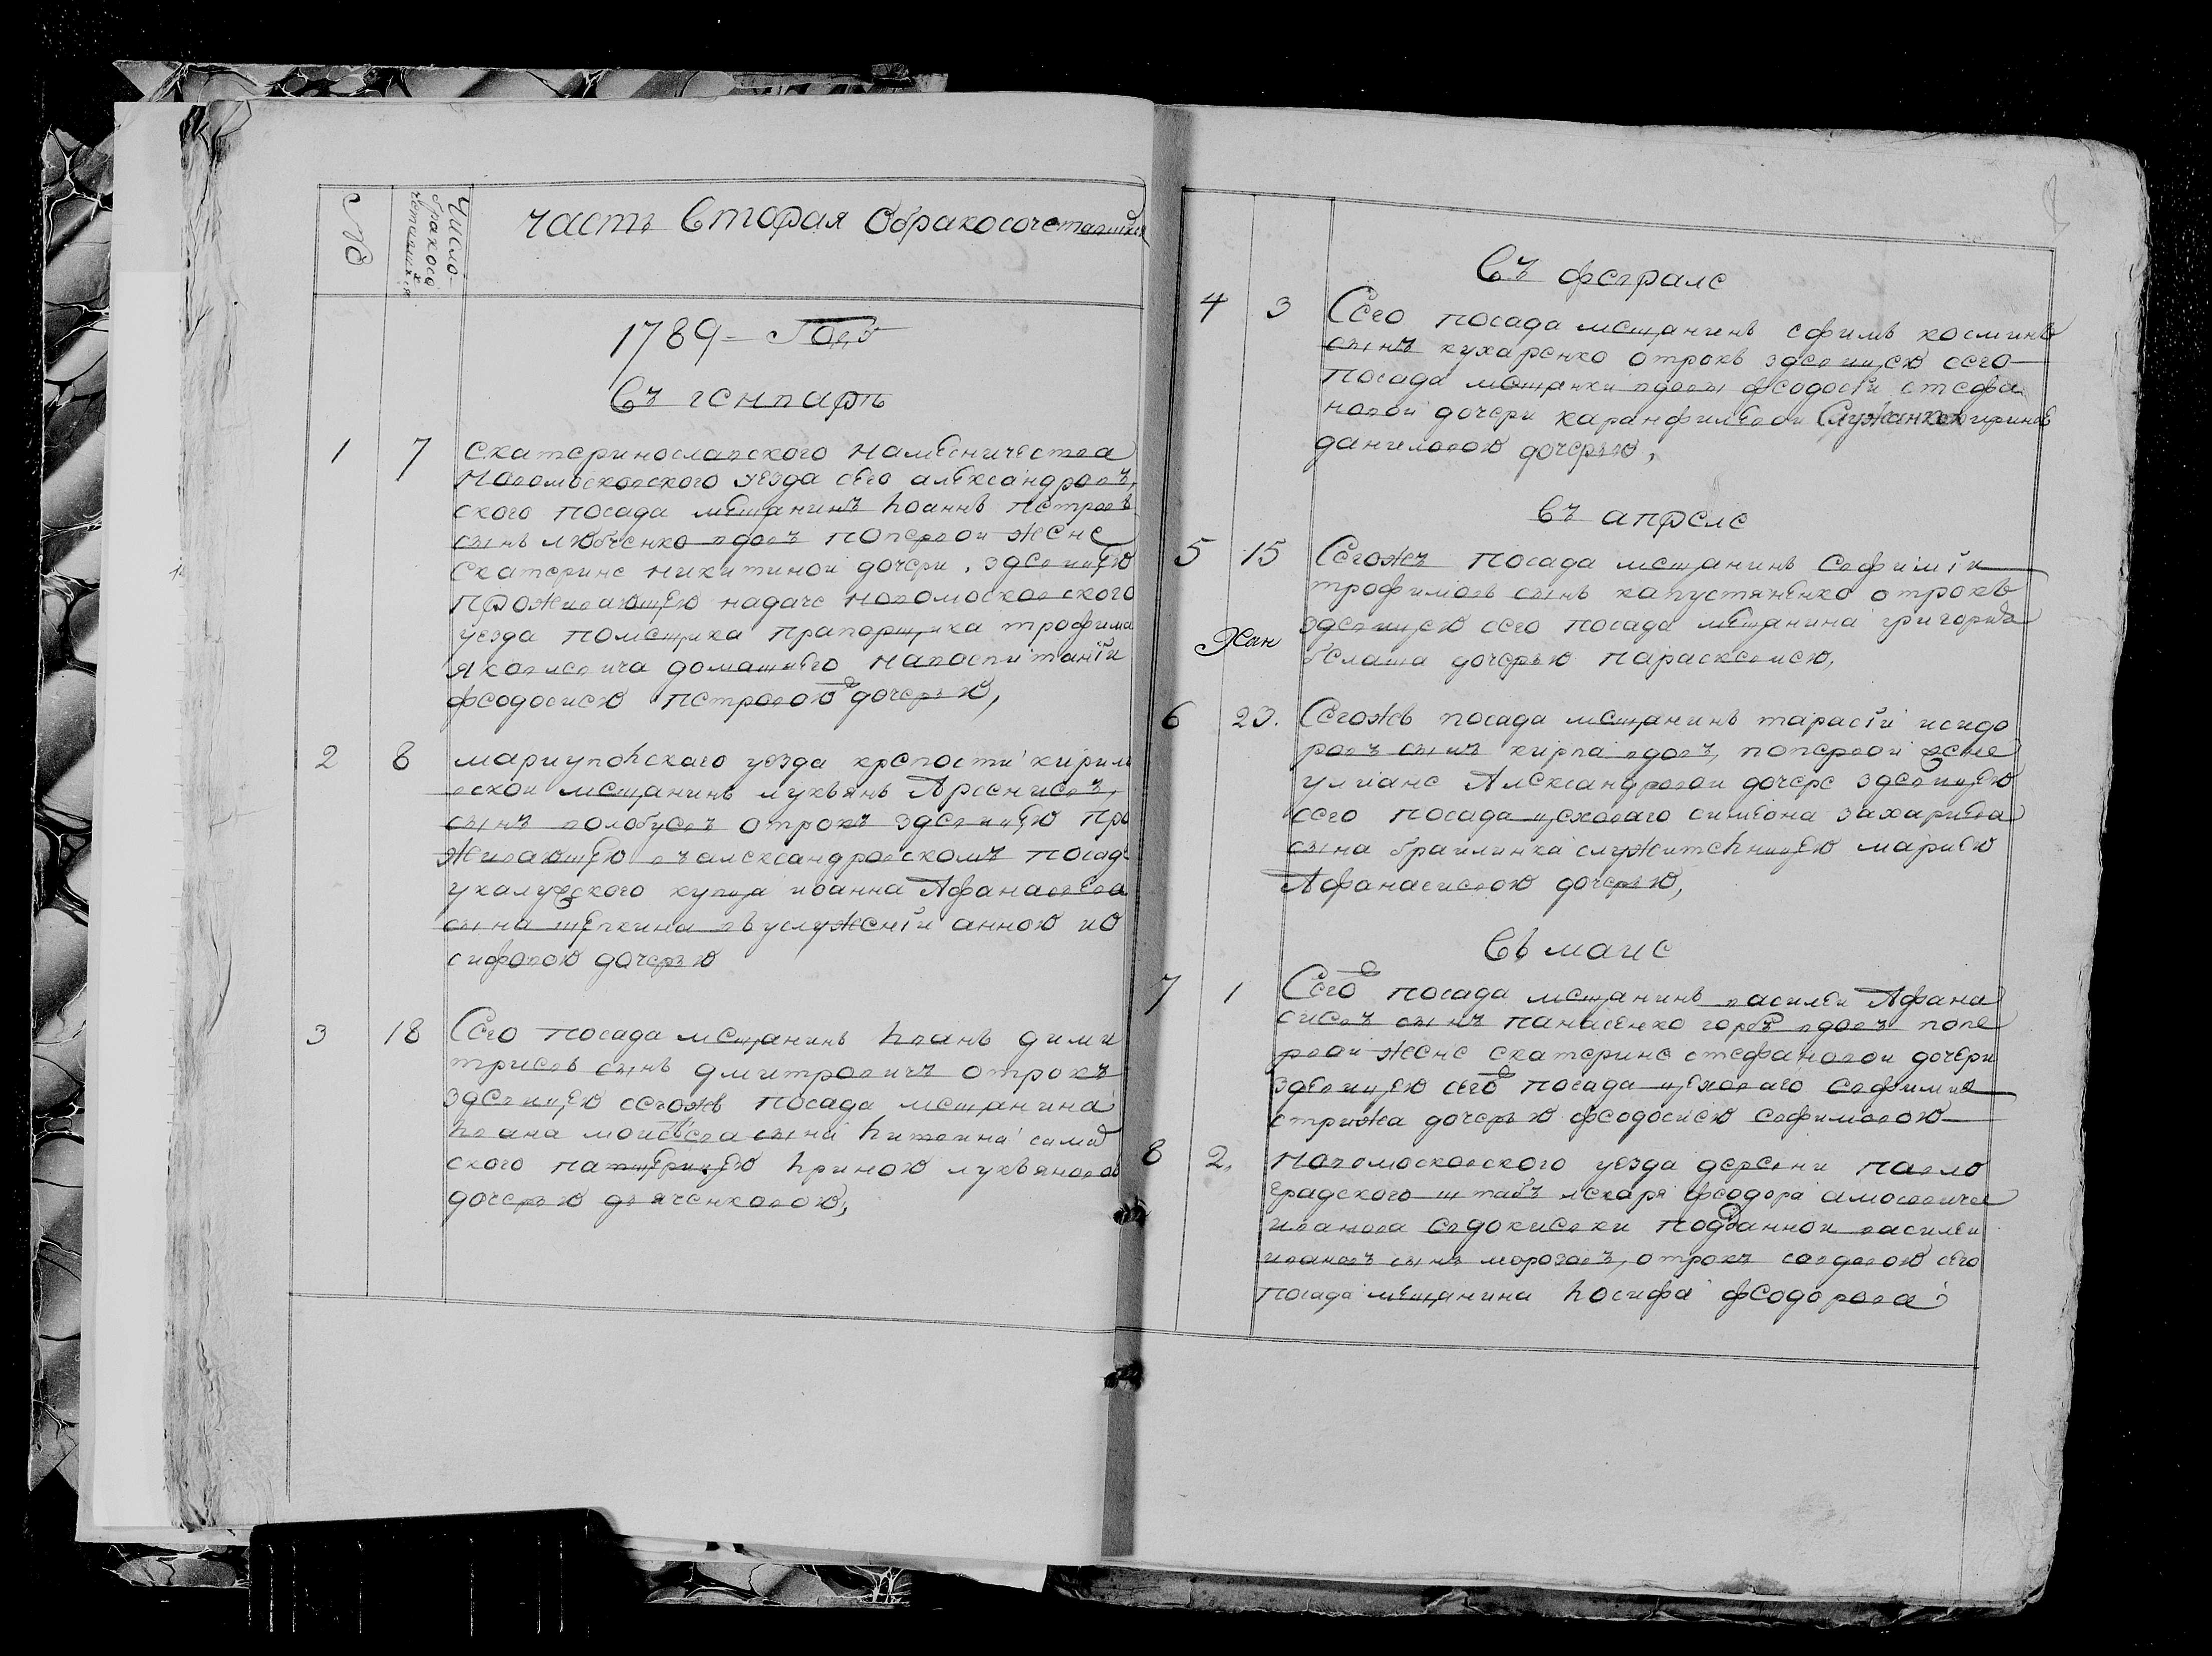 №
Число бракосочетавшихся
часть вторая О бракосочетавшихся
1789 Годъ
въ генваръ
1 7 екатеринославского намесничества
новомосковского уезда сего александровъ
ского посада мещанинъ Іоаннъ петровъ
сынъ любченко вдовъ поперьвои жене
екатерине никитинои дочери, здевицею
проживающею надаче новомосковского
уезда помещика прапорщика трофима
яковлевича домашнего навоспитаніи
феодосиею петровою дочерью,
2 8 мариупольскаго уезда крепости кирил
овскои мещанинъ лукьянъ Арсениевъ
сынъ голобусъ отрокъ здевицею про
живающею въ александровскомъ посад
укалужского купца иоанна Афанасиева
сына щечкина в услужении анною ио
сифовою дочерью
3 18 Сего посада мещанинъ Іванъ дими
триевъ сынъ дмитровичъ отрокъ
здевицею сегожъ посада мещанина
Івана моисеева сына
ского патщерицею Іриною лукьяновою
дочерью дьяченковою,
въ феврале
4 3 Сего посада мещанинъ ефимъ косминъ
сынъ кухаренко отрокъ здевицею сего
посада мещанки вдовы феодосіи стефа
новои дочери каранфилевои служанкою ириною
даниловою дочерью,
въ апреле
5 15 Сегожъ посада мещанинъ евфиміи
трофимовъ сынъ капустяненко отрокъ
здевицею сего посада мещанина григория
белаша дочерью параскевиею,
6 23. Сегожъ посада мещанинъ тарасіи исидо
ровъ сынъ кирпа вдовъ, поперьвои жене
улиане Александровои дочере здевицею
сего посада цеховаго симеона захариева
сына браилинка служительницею мариею
Афанасиевою дочерью,
въ маие
7 1 Сего посада мещанинъ василеи Афана
сиевъ сынъ панасенко горбъ вдовъ попе
рвои жене екатерине стефановои дочери
здевицею сего посада цеховаго евфимия
стрижа дочерью феодосиею евфимовою
8 2. новомосковского уезда деревни павло
градского штабъ лекаря феодора амосовича
иванова евдокиевки подданнои василеи
ивановъ сынъ морозовъ, отрокъ совдовою сего
посада мещанина Іосифа феодорова